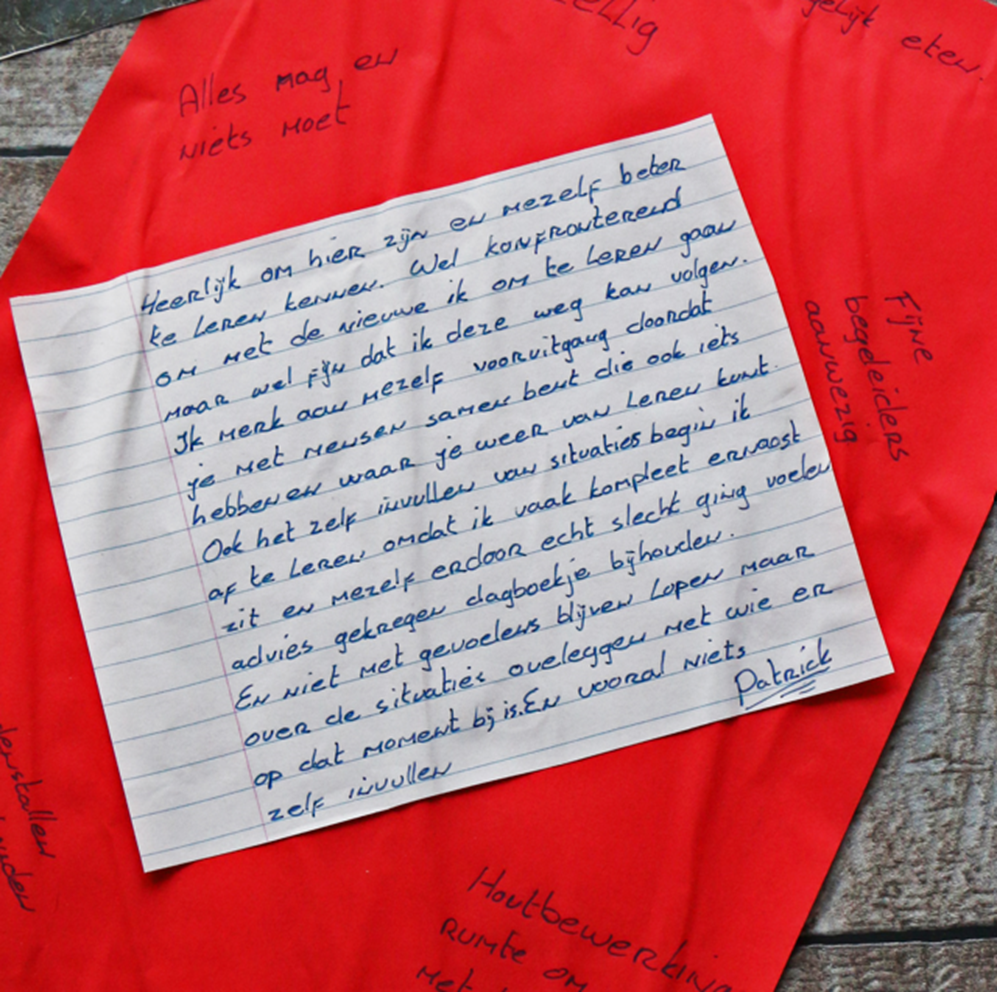 Alles mag en
niets moet
eten.
Heerlijk om hier zijn en mezelf beter
te leren kennen. Wel konfronterend
om met de nieuwe ik om te leren gaan
maar wel fijn dat ik deze weg kan volgen.
Ik merk aan mezelf vooruitgang doordat
je met mensen samen bent die ook iets
hebben en waar je weer van leren kunt.
Ook het zelf invullen van situaties begin ik
af te leren omdat ik vaak kompleet ernaast
zit en mezelf erdoor echt slecht ging voelen
advies gekregen dagboekje bijhouden.
En niet met gevoelens blijven lopen maar
over de situaties oveleggen met wie er
op dat moment bij is. En vooral niets
zelf invullen
Patrick
Fijne
begeleiders
aanwezig
Houtbewerking
ruimte om
met